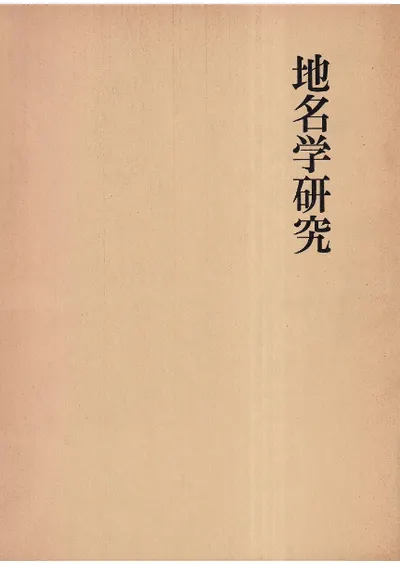 地名学研究